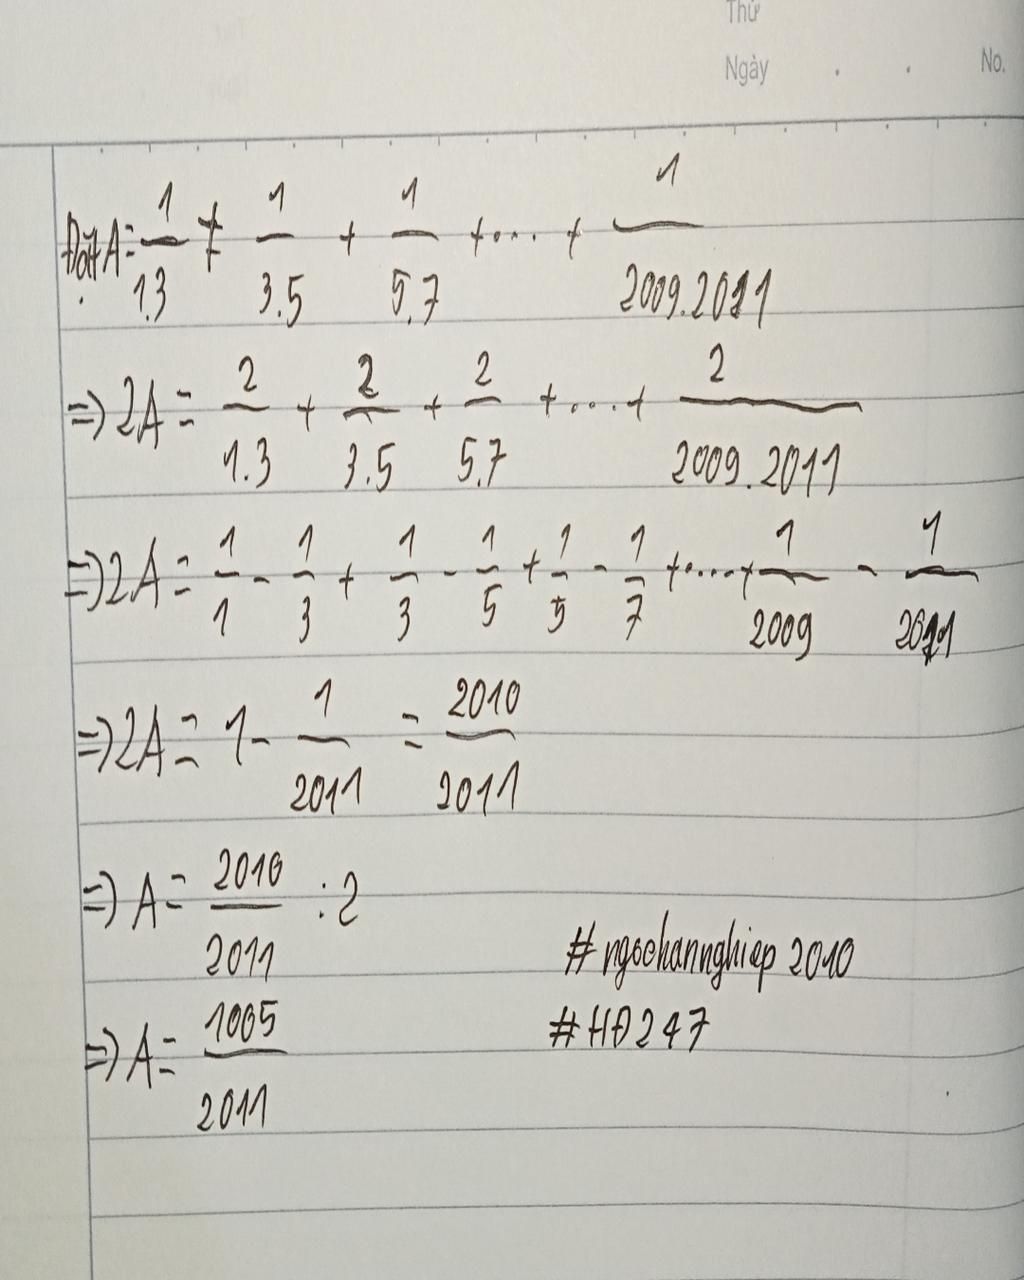 Thứ
Ngày . . No.
Đặt A = 1/1.3 + 1/3.5 + 1/5.7 + .... + 1/2009.2011
=> 2A = 2/1.3 + 2/3.5 + 2/5.7 + .... + 2/2009.2011
=> 2A = 1/1 - 1/3 + 1/3 - 1/5 + 1/5 - 1/7 + .... + 1/2009 - 1/2011
=> 2A = 1 - 1/2011 = 2010/2011
=> A = 2010/2011 : 2
# ngochannghiep 2010
# HĐ247
=> A = 1005/2011